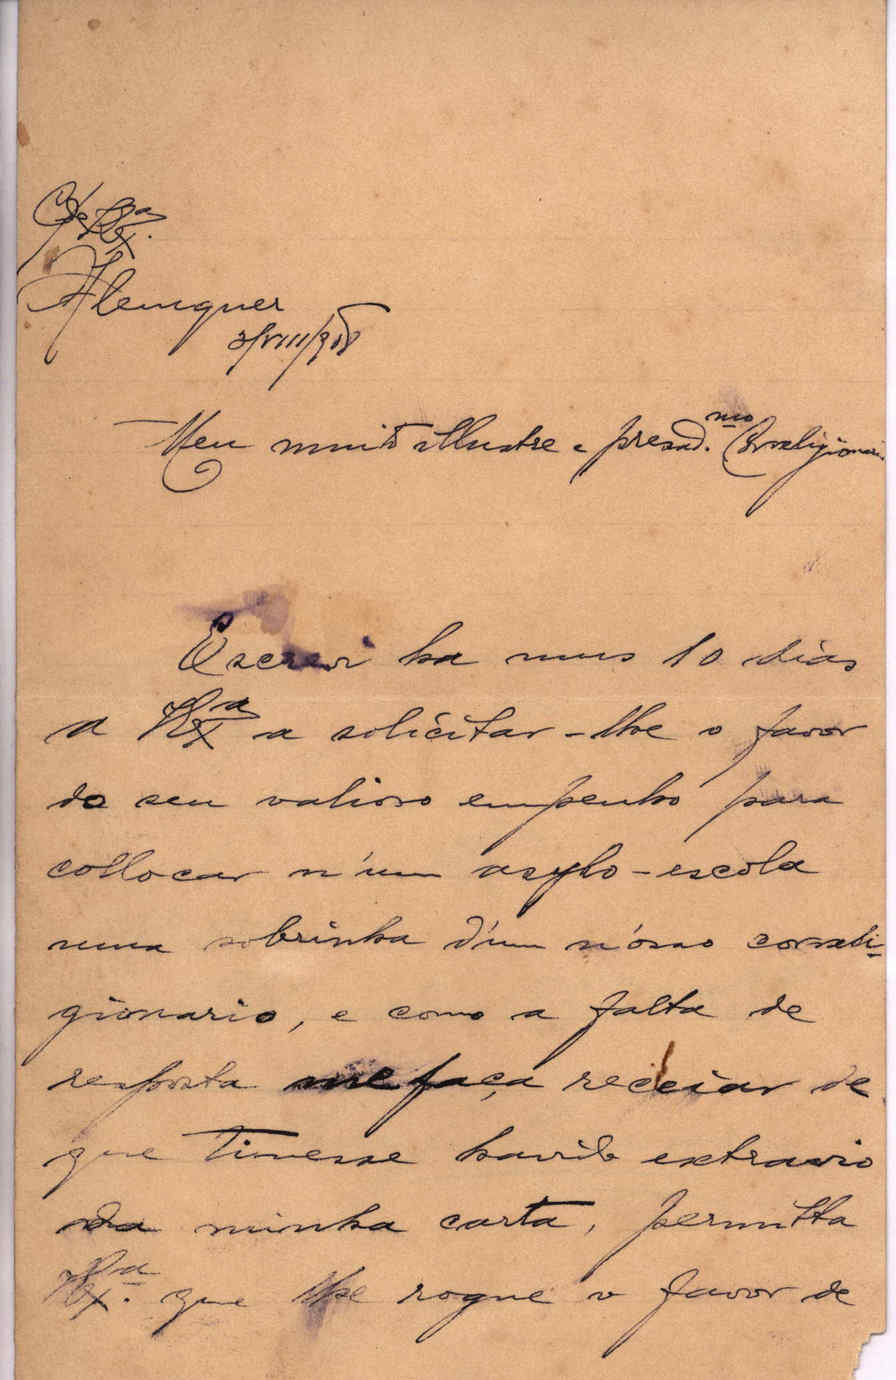 C/de V.Exª.
Alemquer
3/VIII/908
Meu muito illustre e presad.mo Correligionario
Escrevi ha uns 10 dias
a V.Exª a solicitar-lhe o favor
do seu valioso empenho para
collocar n'um asylo-escola
uma sobrinha d'um nósso correli-
gionario, e como a falta de
resposta me faça receiar de
que tivesse havido extravio
da minha carta, permitta
V.Exª. que lhe rogue o favor de